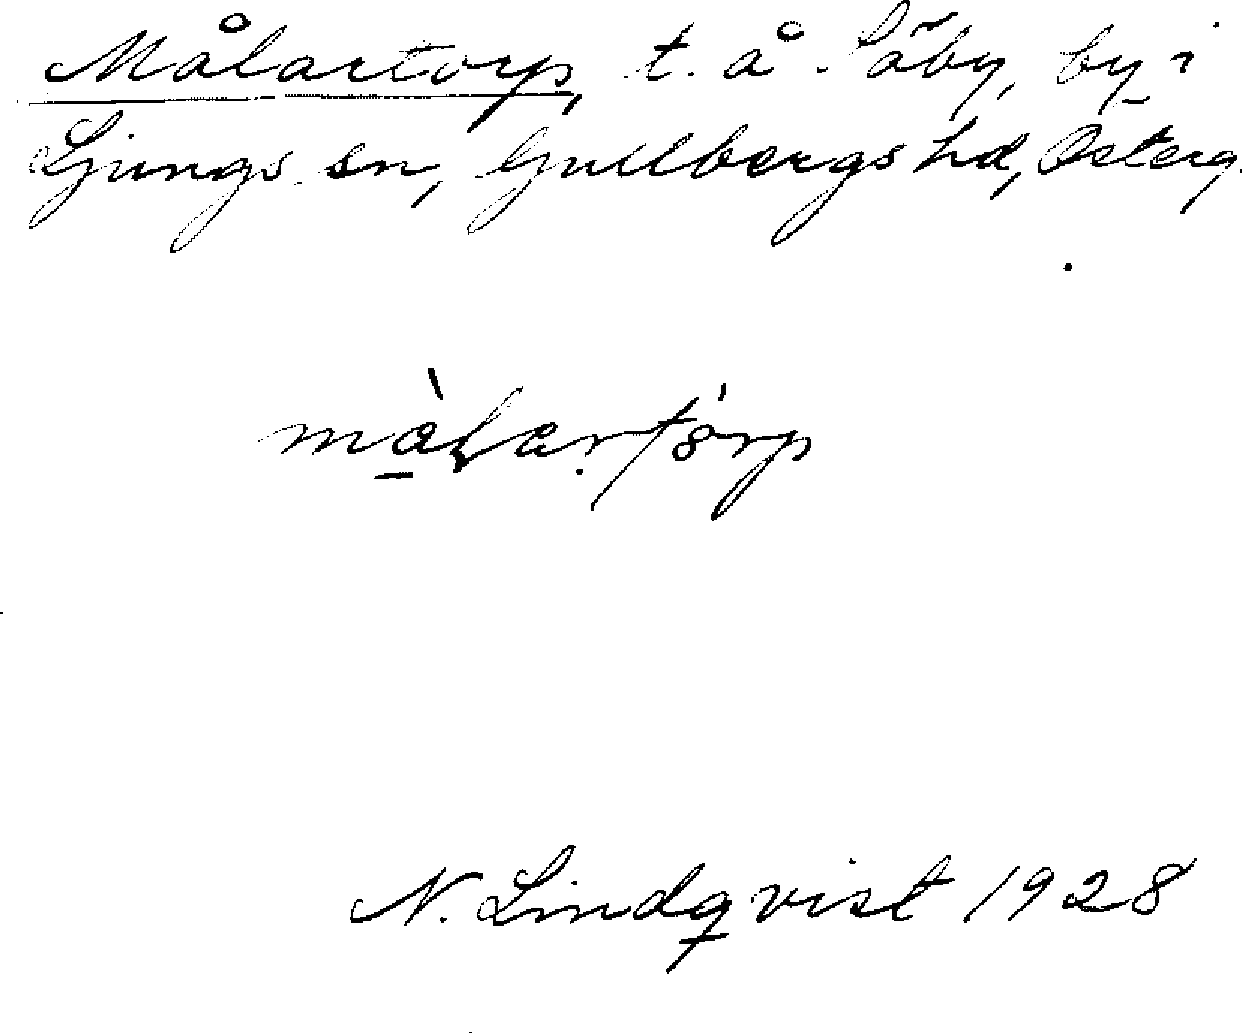 Målartorp, t. å Säby, by i
Ljungs sn, Gullbergs hd, Österg.
màlartórp
N. Lindqvist 1928